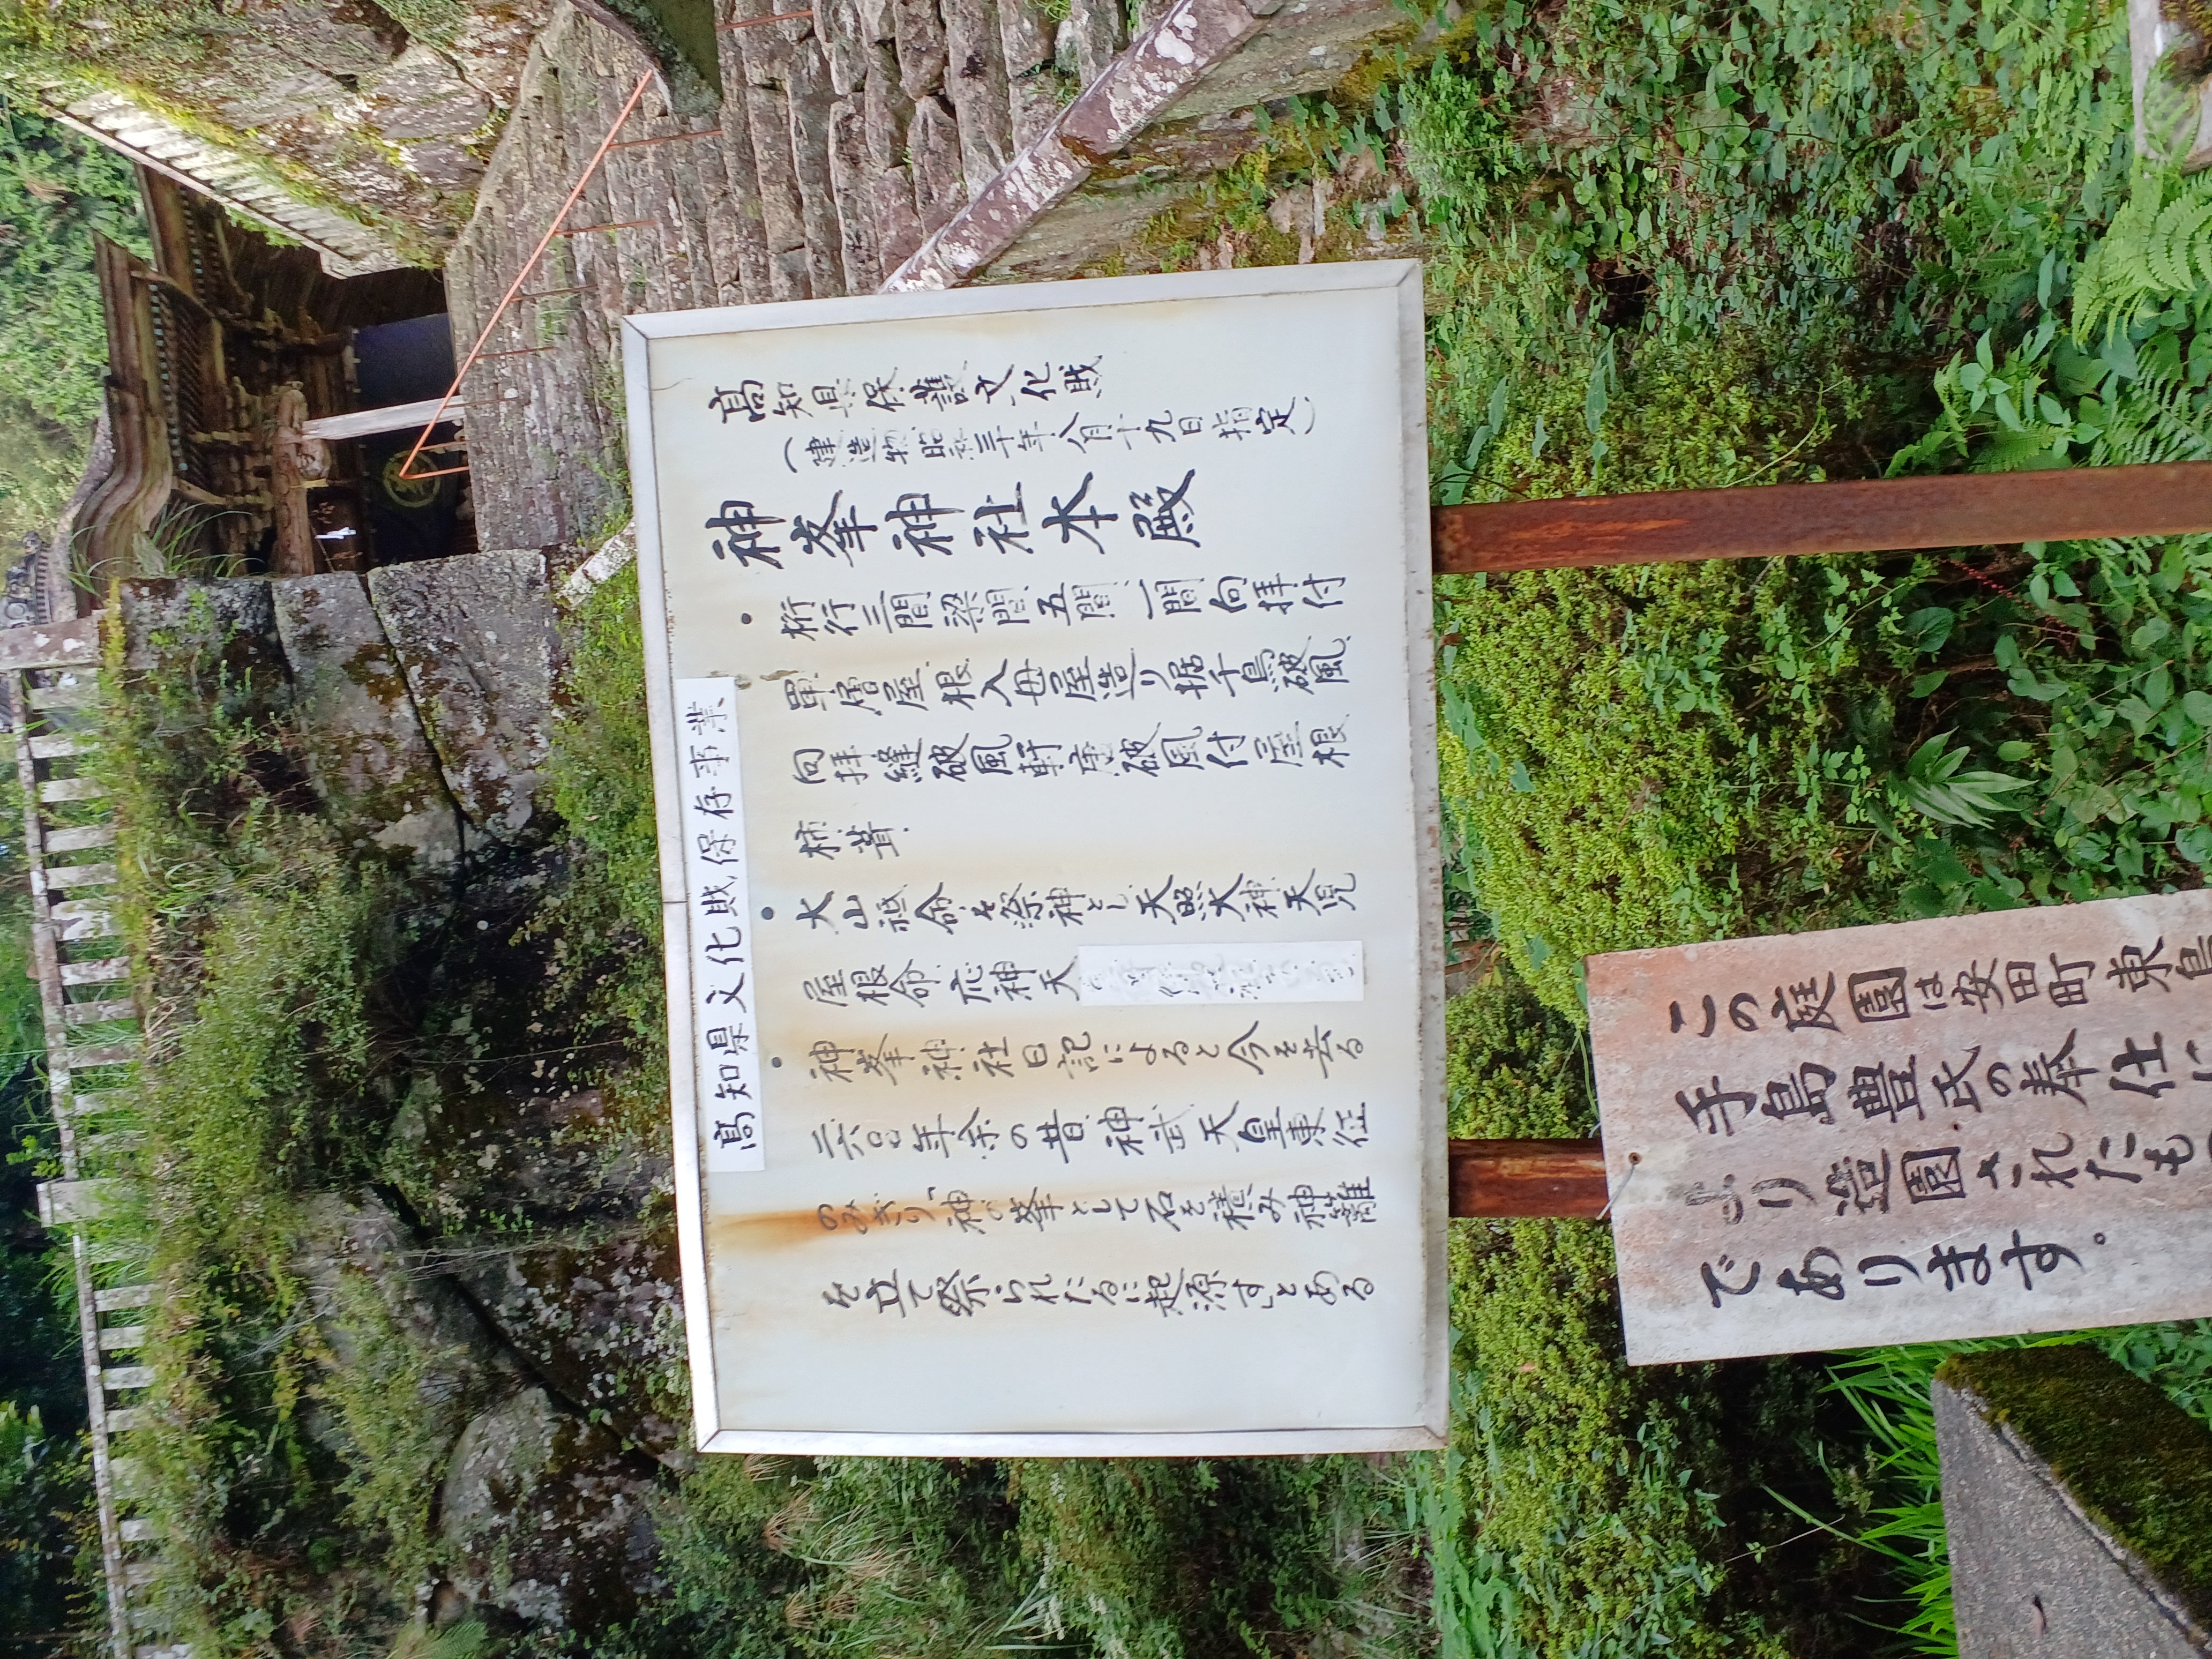 高知県文化財保存事業
高知県保護文化財
(建造物 昭和三十年八月十九日指定)
神峯神社本殿
・桁行三間梁間五間一間向拝付
単層屋根入母屋造り据千鳥破風
向拝縋破風軒唐破風付屋根
柿葺
・大山祇命を祭神とし天照大神天児
屋根命応神天
・神峯神社日記によると今を去る
二六〇〇年余の昔神武天皇東征
のみぎり神の峯として石を積み神籬
を立て祭られたるに起源すとある
この庭園は安田町東島
手島豊氏の奉仕に
より造園されたも
であります。